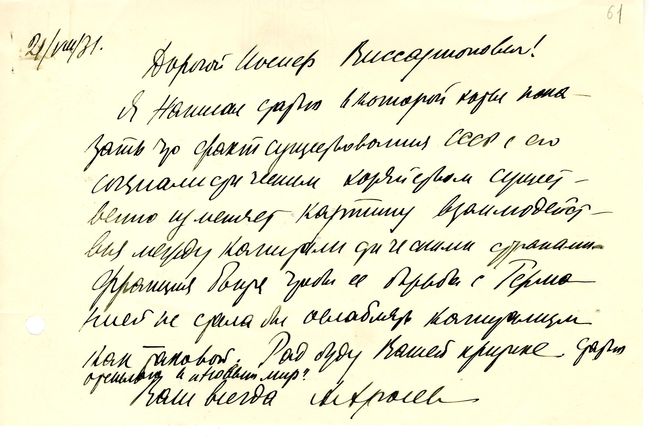 61
21/VIII/31.
Дорогой Иосиф Виссарионович!
Я написал статью в которой хотел пока-
зать что факт существования СССР с его
социалистическим хозяйством сущест-
венно изменяет картину взаимодейст-
вия между капиталистическими странами
Франция бы ее борьбы с Герма
нией не стала бы ослаблять капитализм
как таковой. Рад буду Вашей критике статью
отсылаю в „Новый мир“
Ваш всегда А Аросев